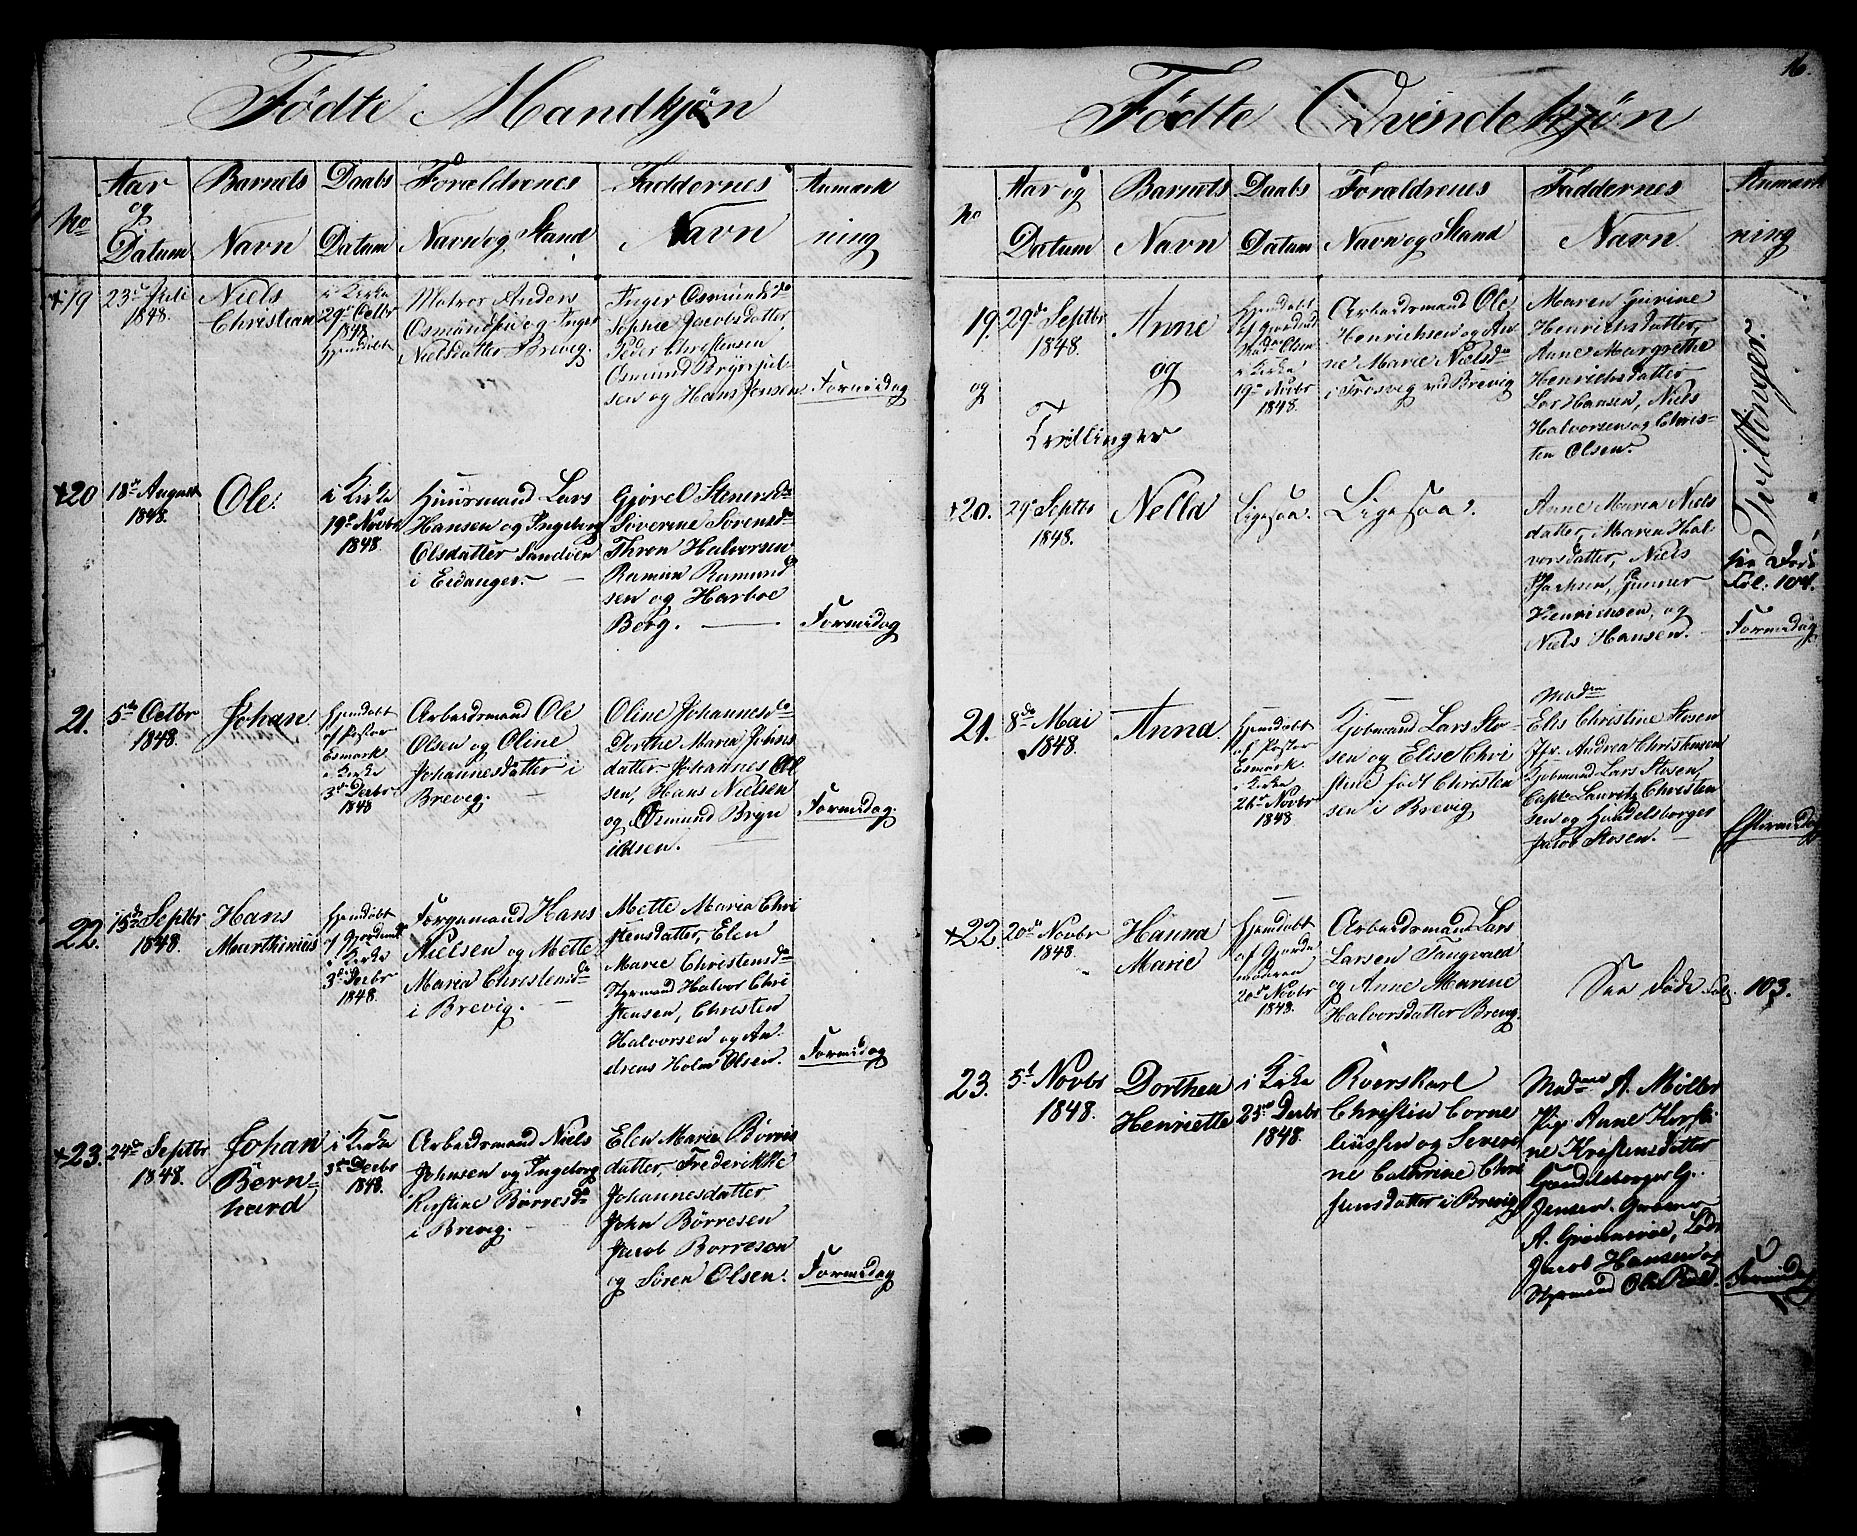 Fødte Mandkjøn
No
Aar og Datum
Barnets Navn
Daabs Datum
Forældrenes Navn og Stand
Faddernes Navn
Anmærkning
19
23de Juli
1848.
Niels
Christian
i Kirke
29de Octbr
1848
hjemdøbt
Matros Anders
Osmundsen og Inger
Nielsdatter Brevig.
Inger Osmundsdr
Sophie Jacobsdatter
Peder Christensen
Osmund Brynjul
sen og Hans Jensen.
Formidag
20
18de August
1848.
Ole.
i Kirke
19de Novbr
1848
Huusmand Lars
Hansen og Ingeborg
Olsdatter Sandøen
i Eidanger.
Gjøroel Stenersdr
Søverine Sørensdr
Thron Halvorsen
Ramun Ramund
sen og Harboe
Borg.
Formidag
21.
5te Octbr
1848.
Johan
hjemdøbt
af Pastor
Esmark
i Kirke
3de Decbr
1848
Arbeidsmand Ole
Olsen og Oline
Johannesdatter i
Brevig.
Oline Johannesdr
Dorthe Maria Johns
datter Johannes Ol
sen, Hans Nielsen
og Osmund Bryn
ildsen.
Formidag.
22.
15de Septbr
1848.
Hans
Marthinius
hjemdøbt
af Gjordemdr
i Kirke
3de Decbr
1848.
Færgemand Hans
Nielsen og Mette
Maria Christensdr
i Brevig.
Mette Maria Chri
stensdatter, Elen
Marie Christensdr
Styrmand Halvor Chri
stensen, Christen
Halvorsen og An
dreas Holm Olsen.
Formidag
23.
24de Septbr
1848.
Johan
Bern-
hard
i Kirke
3de Decbr
1848.
Arbeidsmand Niels
Johnsen og Ingeborg
Kirstine Børresdr
i Brevig.
Elen Marie Børres
datter, Frederikke
Johannesdatter
John Børresen
Jacob Borresen
og Søren Olsen.
Formidag
16.
Fødte Qvindekjøn
No
Aar og Datum
Barnets Navn
Daabs Datum
Forældrenes Navn og Stand
Faddernes Navn
Anmærkning
19.
og
29de Septbr
1848.
Tvillinger
Anne
og
Hjemdøbt
af Gjordmd
Mad. Olsen
i Kirke
19de Novbr
1848.
Arbeidsmand Ole
Henrichsen og An
ne Marie Nielsdr
i Trosvig ved Brevig
Maren Gurine
Henrichsdatter,
Anne Margrethe
Henrichsdatter
Lars Hansen, Niels
Halvorsen og Chris-
ten Olsen.
Tvillinger.
20.
29de Septbr
1848.
Nella
Ligesaa.
Ligesaa.
Anne Maria Niels
datter, Maren Hal
vorsdatter, Niels
Isachsen, Gunner
Henrichsen, og
Niels Hansen.
see Døde
Fol. 104.
Formidag
21.
8de Mai
1848.
Anna.
Hjemdøbt
af Pastor
Esmark.
i Kirke
26de Novbr
1848
Kjøbmand Lars Sto-
sen og Elise Chri
stine født Christen
sen i Brevig
Madm
Elis Christine Stosen
Jfr. Andrea Christensen
Kjøbmand Lars Stosen
Capt. Lauritz Christen
sen og Handelsborger
Jacob Stosen.
Eftermidag
22.
20de Novbr
1848.
Hanna
Marie
Hjemdøbt
af Gjorde
moderen
20de Novbr
1848.
Arbeidsmand Lars
Larsen Tangvald
og Anne Marine
Halvorsdatter Brevig.
See Døde Fol. 103.
23.
5te Novbr
1848.
Dorthea
Henriette
i Kirke
25de Decbr
1848.
Roerskarl
Christen Corne
liussen og Severi
ne Cathrine Chri
stensdatter i Brevig
Madme A. Møller
Pige Anne Kirsti
ne Kristensdatter
Handelsborger G.
Jensen
A.
Jacob Hansen og
Styrmand Ole
Formidag